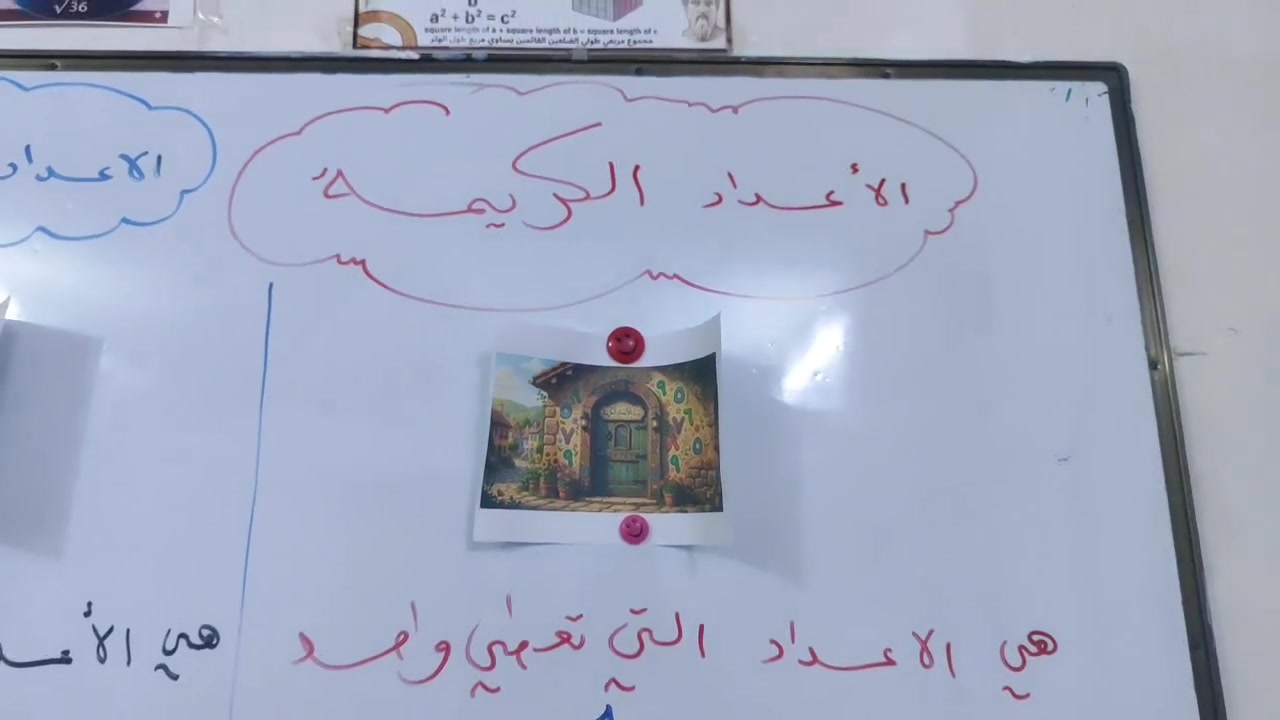 √36
b
a² + b² = c²
square length of a + square length of b = square length of c
مجموع مربعي طولي الضلعين القائمين يساوي مربع طول الوتر
الأعداد الكريمة
الاعداد
٩ ٥ ٦ ٧ ٨ ٥ ٩
٥ ٧ ٩
هي الاعداد التي تعطي واحد
هي الأعد